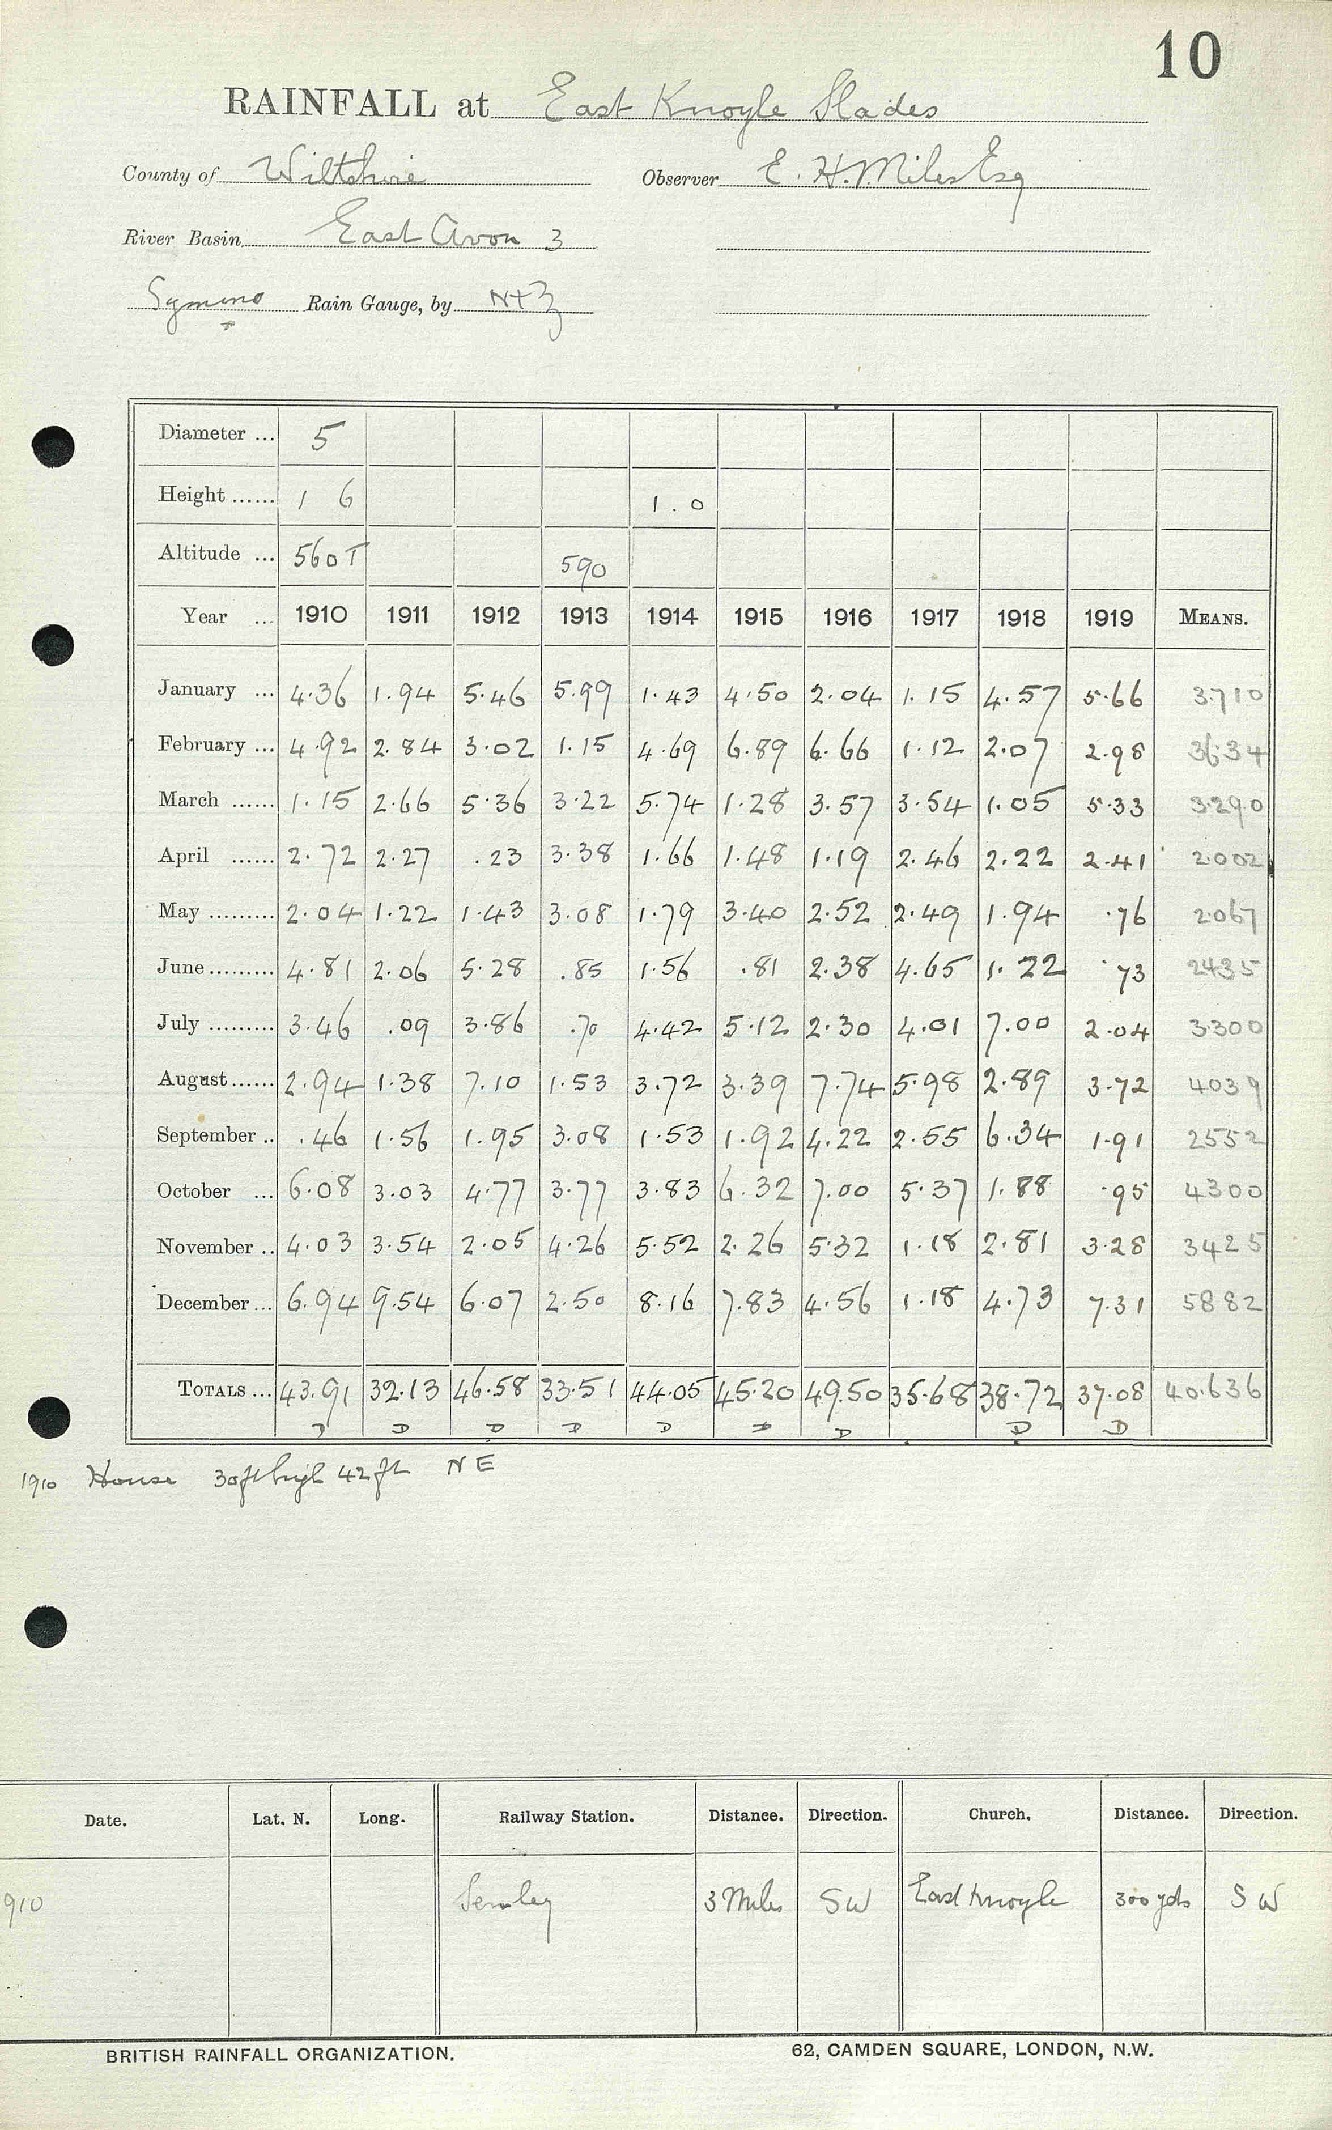 10
RAINFALL at East Knoyle Slades
County of Wiltshire Observer E. H. Miles Esq
River Basin East Avon 3
Symons Rain Gauge, by N+Z
Diameter ... 5
Height ...... 1 6 1.0
Altitude ... 560T 590
Year ... 1910 1911 1912 1913 1914 1915 1916 1917 1918 1919 MEANS.
January ... 4.36 1.94 5.46 5.99 1.43 4.50 2.04 1.15 4.57 5.66 3.710
February ... 4.92 2.84 3.02 1.15 4.69 6.89 6.66 1.12 2.07 2.98 3634
March ...... 1.15 2.66 5.36 3.22 5.74 1.28 3.57 3.54 1.05 5.33 3.290
April ...... 2.72 2.27 .23 3.38 1.66 1.48 1.19 2.46 2.22 2.41 2.002
May ......... 2.04 1.22 1.43 3.08 1.79 3.40 2.52 2.49 1.94 .76 2.067
June......... 4.81 2.06 5.28 .85 1.56 .81 2.38 4.65 1.22 .73 2435
July ......... 3.46 .09 3.86 .70 4.42 5.12 2.30 4.01 7.00 2.04 3.300
August...... 2.94 1.38 7.10 1.53 3.72 3.39 7.74 5.98 2.89 3.72 4039
September .. .46 1.56 1.95 3.08 1.53 1.92 4.22 2.55 6.34 1.91 2552
October ... 6.08 3.03 4.77 3.77 3.83 6.32 7.00 5.37 1.88 .95 4300
November .. 4.03 3.54 2.05 4.26 5.52 2.26 5.32 1.18 2.81 3.28 3425
December... 6.94 9.54 6.07 2.50 8.16 7.83 4.56 1.18 4.73 7.31 5882
TOTALS ... 43.91 32.13 46.58 33.51 44.05 45.20 49.50 35.68 38.72 37.08 40.636
D D D D D D D D D
1910 House 30ft high 42 ft NE
Date. Lat. N. Long. Railway Station. Distance. Direction. Church. Distance. Direction.
910 Semley 3 Miles SW East Knoyle 300 yds SW
BRITISH RAINFALL ORGANIZATION. 62, CAMDEN SQUARE, LONDON, N.W.